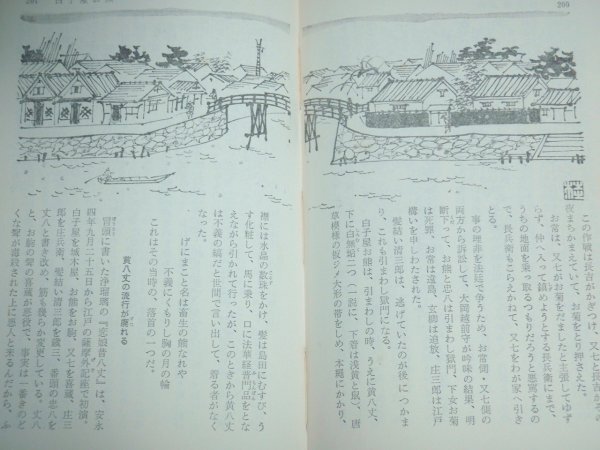 200
この作戦は長吉がかぎつけ、又七と長吉がその
夜まちかまえていて、お菊をとり押さえた。
お常は、又七がお菊をだましたと主張してゆず
らず、仲へ入って鎮めようとする長兵衛にまで、
うちの地面を乗っ取るつもりだろうと悪罵するの
で、長兵衛もこらえかねて、又七をわが家へ引き
とる。
事の理非を法廷で争うため、お常側・又七側の
両方から訴訟して、大岡越前守が吟味の結果、明
断下って、お熊と忠八は引まわし獄門、下女お菊
は死罪、お常は遠島、玄柳は追放、庄三郎は江戸
構いを申しわたされた。
髪結い清三郎は、逃げていたのが後につかま
り、これも引まわし獄門になる。
白子屋お熊は、引まわしの時、うえに黄八丈、
下に白無垢二つ（一説に、下着は浅黄と鼠）、唐
草模様の板ジメ大形の帯をしめ、本縄にかかり、
201
白子屋
襟には水晶の数珠をかけ、髪は島田にむすび、う
す化粧して、馬に乗り、口に法華経普門品をとな
えながら引かれて行ったが、このときから黄八丈
は不義の縞だと世間で言い出して、着る者がなく
なった。
げにまこと名は畜生の熊なれや
不義にくもりし胸の月の輪
これはその当時の、落首の一つだ。
黄八丈の流行が廃れる
冒頭に書いた浄瑠璃の『恋娘昔八丈』は、安永
四年九月二十五日から江戸の薩摩外記座で初演。
白子屋を城木屋、お熊をお駒、又七を喜蔵、庄三
郎を庄兵衛、髪結い清三郎を才三、番頭の忠八を
丈八と書き改め、筋も幾らか変更している。丈八
と、お駒の聟の喜蔵が悪役で、事実は一番きのど
くな聟が毒殺された上に悪人と来るんだから、ふ